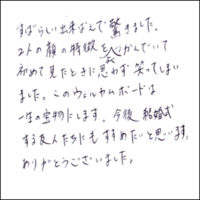 すばらしい出来ばえで驚きました。
2人の顔の特徴をつかんでいて
初めて見たときに思わず笑ってしまい
ました。このウェルカムボードは
一生の宝物にします。今後結婚式
する友人たちにもすすめたいと思います。
ありがとうございました。